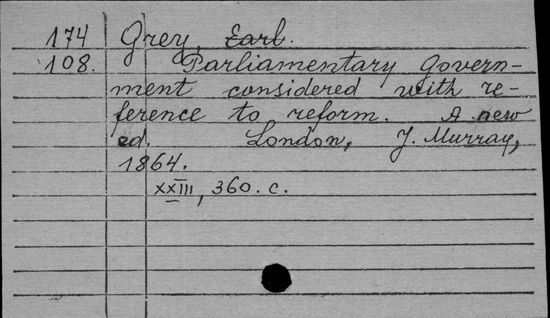 174 Grey, Earl.
108. Parliamentary Govern-
ment considered with re-
ference to reform. A new
ed. London, J. Murray,
1864.
XXIII, 360. c.